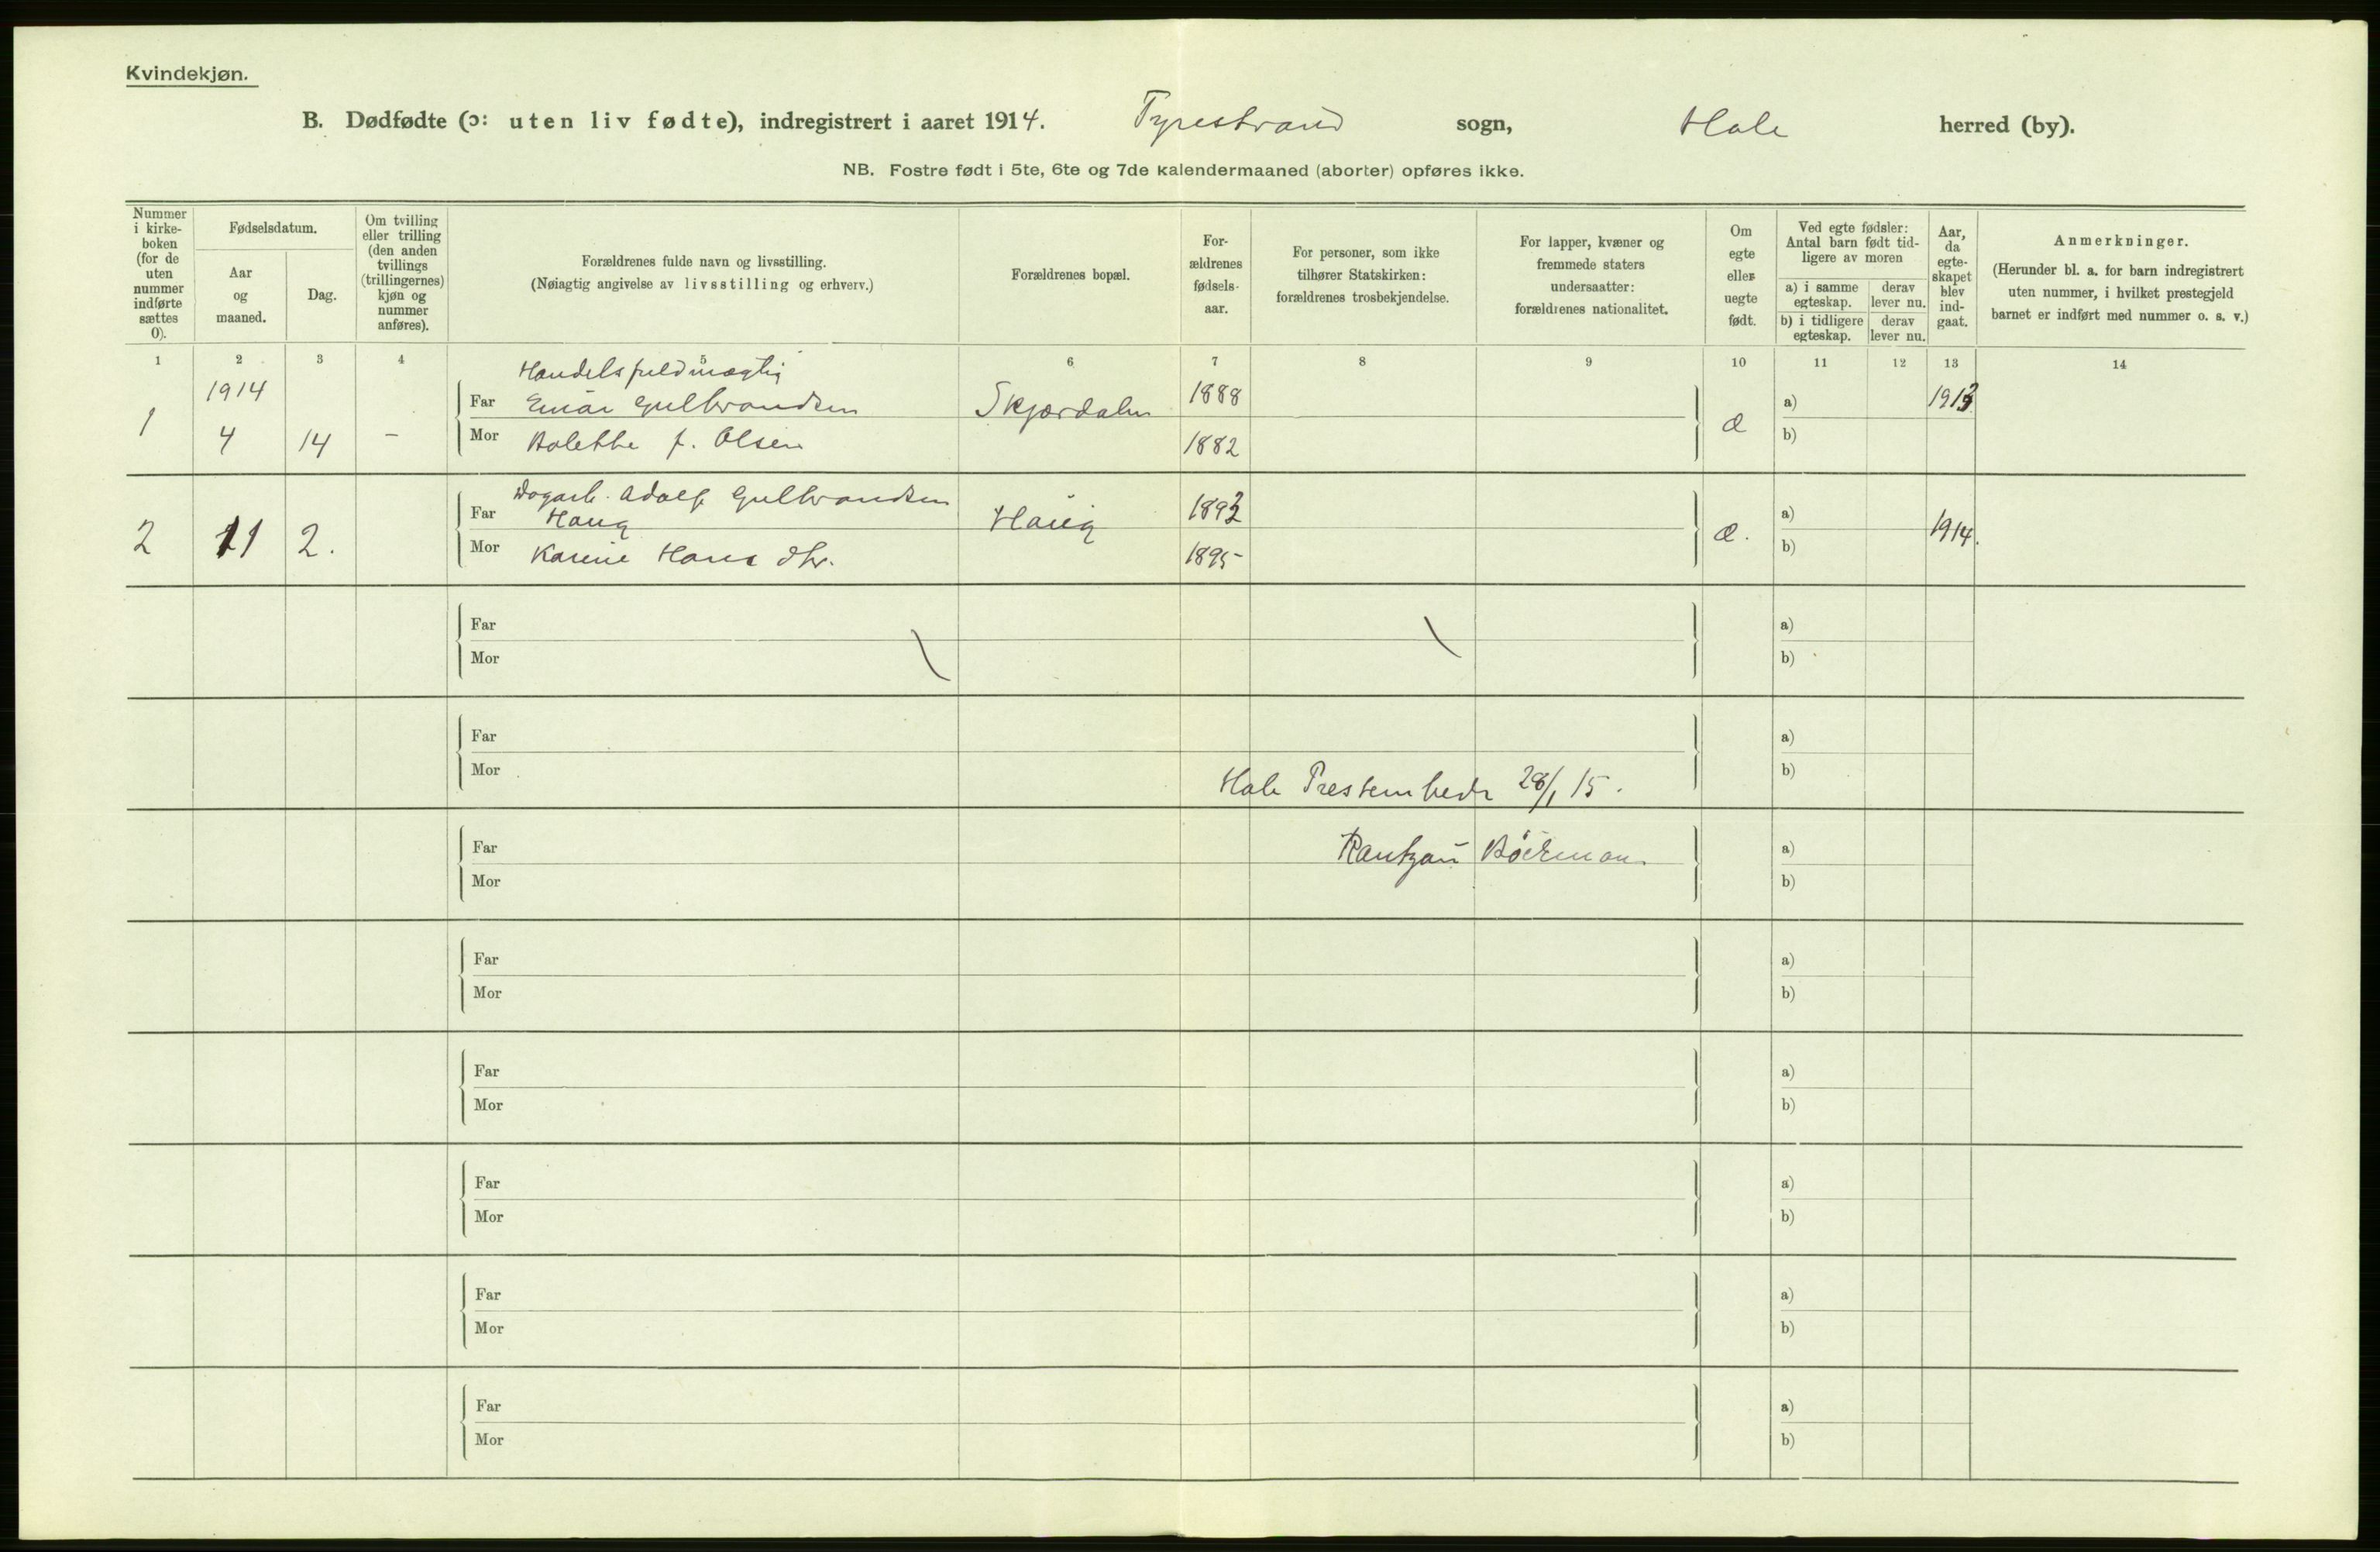 Kvindekjøn.
B. Dødfødte (ɔ: uten liv fødte), indregistrert i aaret 1914. Tyrestrand sogn, Hole herred (by).
NB. Fostre født i 5te, 6te og 7de kalendermaaned (aborter) opføres ikke.
Nummer i kirke-boken (for de uten nummer indførte sættes 0).
Fødselsdatum.
Aar og maaned.
Dag.
Om tvilling eller trilling (den anden tvillings (trillingernes) kjøn og nummer anføres).
Forældrenes fulde navn og livsstilling.
(Nøiagtig angivelse av livsstilling og erhverv.)
Forældrenes bopæl.
For-ældrenes fødsels-aar.
For personer, som ikke tilhører Statskirken: forældrenes trosbekjendelse.
For lapper, kvæner og fremmede staters undersaatter: forældrenes nationalitet.
Om egte eller uegte født.
Ved egte fødsler: Antal barn født tid-ligere av moren
a) i samme egteskap.
derav lever nu.
b) i tidligere egteskap.
derav lever nu.
Aar, da egte-skapet blev ind-gaat.
Anmerkninger.
(Herunder bl. a. for barn indregistrert uten nummer, i hvilket prestegjeld barnet er indført med nummer o. s. v.)
1 2 3 4 5 6 7 8 9 10 11 12 13 14
Handelsfuldmægtig
1914
1 Far Einar Gulbrandsen Skjærdalen 1888 a) 1913
4 14 – Mor Bolette f. Olsen 1882 Æ b)
Dagarb. Adolf Gulbrandsen
Far Haug Haug 1893 a)
2 11 2. Mor Karine Hans dtr. 1895 Æ. b) 1914.
Far a)
Mor b)
Far a)
Mor b)
Hole Prestembede 28/1 15.
Far Rantzau Bóckman a)
Mor b)
Far a)
Mor b)
Far a)
Mor b)
Far a)
Mor b)
Far a)
Mor b)
Far a)
Mor b)